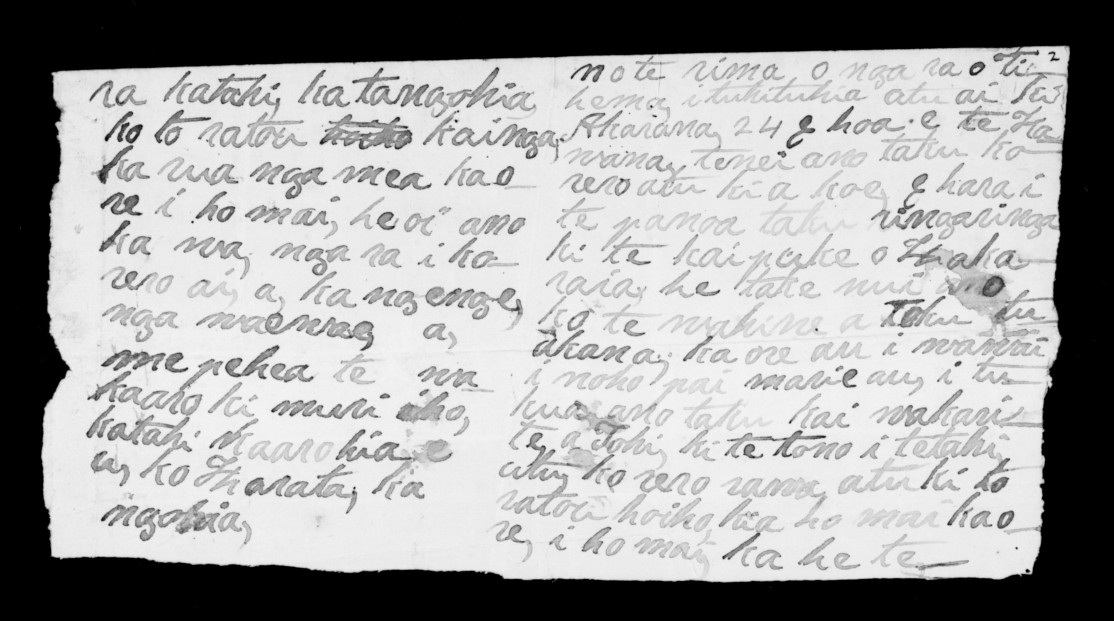 ra katahi, ka tangohia
ko to ratou hoiho kainga,
ka rua nga mea kao-
re i ho mai, heoi ano
ka wa, nga ra i ko-
rero ai, a, ka ngenge,
nga waewae, a,
me pehea te wa
kaaro ki muri iho,
katahi kaarohia e
u, ko Harata, ka
ngohia,
2
no te rima, o nga ra o Ti-
hema, i tuhituhia atu ai ki
Akarana, 24 E hoa. e te Ka
wana, tenei ano taku ko-
rero atu ki a koe, E hara i
te panoa taku ringaringa
ki te kaipuke o Haka-
raia, he take nui ano
ko te wahine a toku tu-
akana, kaore au i wawai
i noho pai marie au, i tu-
kua ano taku kai wakari-
te, a Tohi, ki te tono i tetahi,
utu, ko rero rawa, atu ki to
ratou hoiho, kia ho mai kao-
re, i ho mai, ka he te